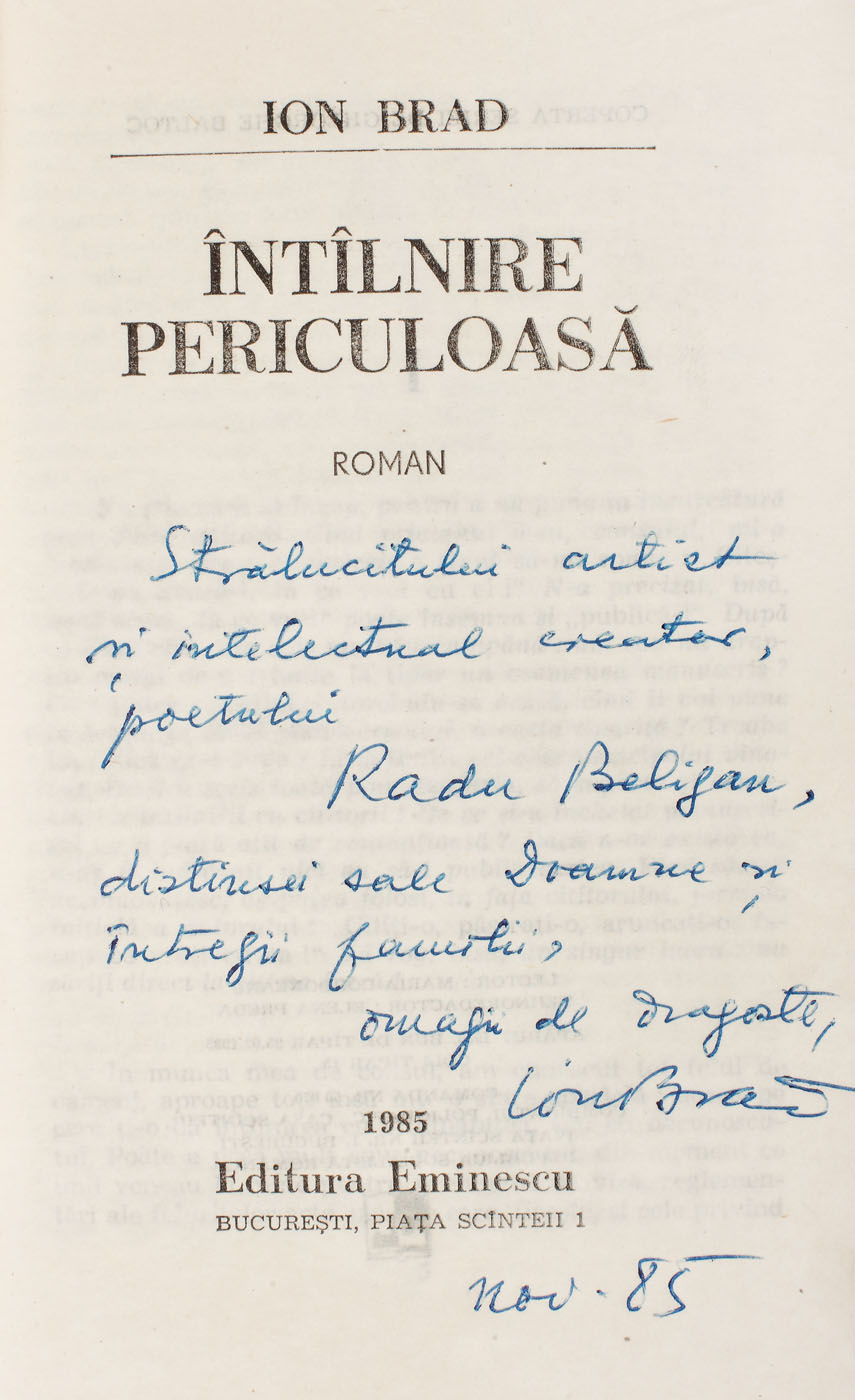 ION BRAD
ÎNTÎLNIRE
PERICULOASĂ
ROMAN
Strălucitului artist
și intelectual creator,
poetului
Radu Beligan,
distinsei sale Doamne și
întregii familii,
omagii de dragoste,
Ion Brad
1985
Editura Eminescu
BUCUREȘTI, PIAȚA SCÎNTEII 1
nov. 85